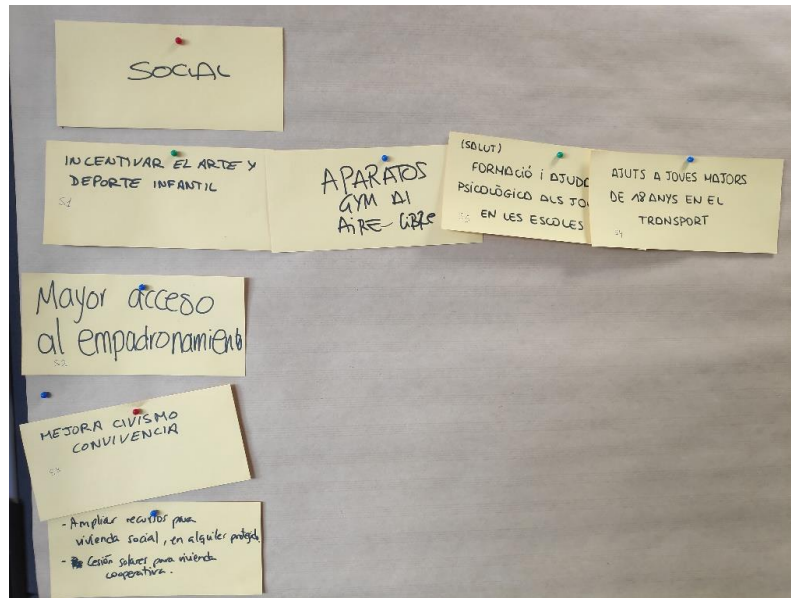 SOCIAL
INCENTIVAR EL ARTE Y
DEPORTE INFANTIL
S1
APARATOS
GYM Al
AiRE-LiBRE
(SALUT)
FORMACIÓ i AJUDA
PSICOLÒGICA ALS JO
EN LES ESCOLES
AJUTS A JOVES MAJORS
DE 18 ANYS EN EL
TRANSPORT
Mayor acceso
al empadronamiento
S2
MEJORA CIVISMO
CONVIVENCIA
- Ampliar recursos para
vivienda social, en alquiler protegido.
- Cesión solares para vivienda
cooperativa.